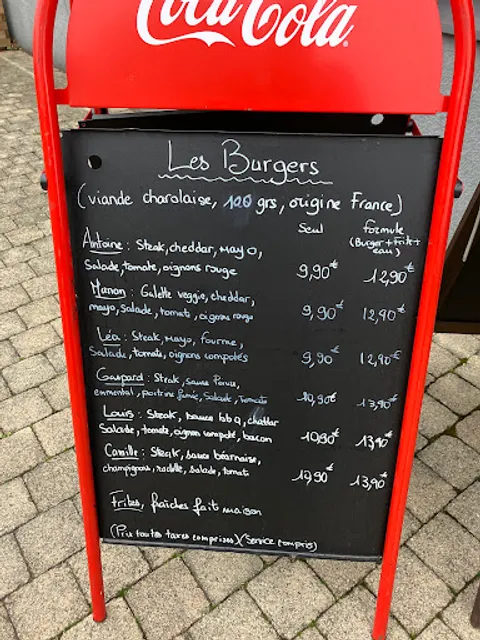 Coca-Cola
Les Burgers
(viande charolaise, 120 grs, origine France)
Seul formule
(Burger+Frite+
eau)
Antoine : Steak, cheddar, mayo,
Salade, tomate, oignons rouge 9,90€ 12,90€
Manon : Galette veggie, cheddar,
mayo, salade, tomate, oignons rouge 9,90€ 12,90€
Léa : Steak, mayo, fourme,
Salade, tomate, oignons compotés 9,90€ 12,90€
Gaspard : Steak, sauce
emmental, poitrine fumée, salade, tomate 10,90€ 13,90€
Louis : Steak, sauce bbq, cheddar
Salade, tomate, oignon compoté, bacon 10,90€ 13,90€
Camille : Steak, sauce béarnaise,
champignons, raclette, salade, tomate 10,90€ 13,90€
Frites, fraîches fait maison
(Prix toutes taxes comprises)(Service compris)